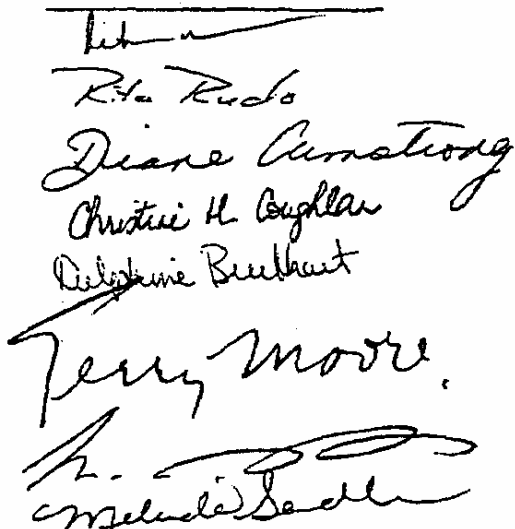 Rita Rudo
Diane Armstrong
Christine H. Coughlan
Delphine Burkhart
Terry Moore.
Melinda